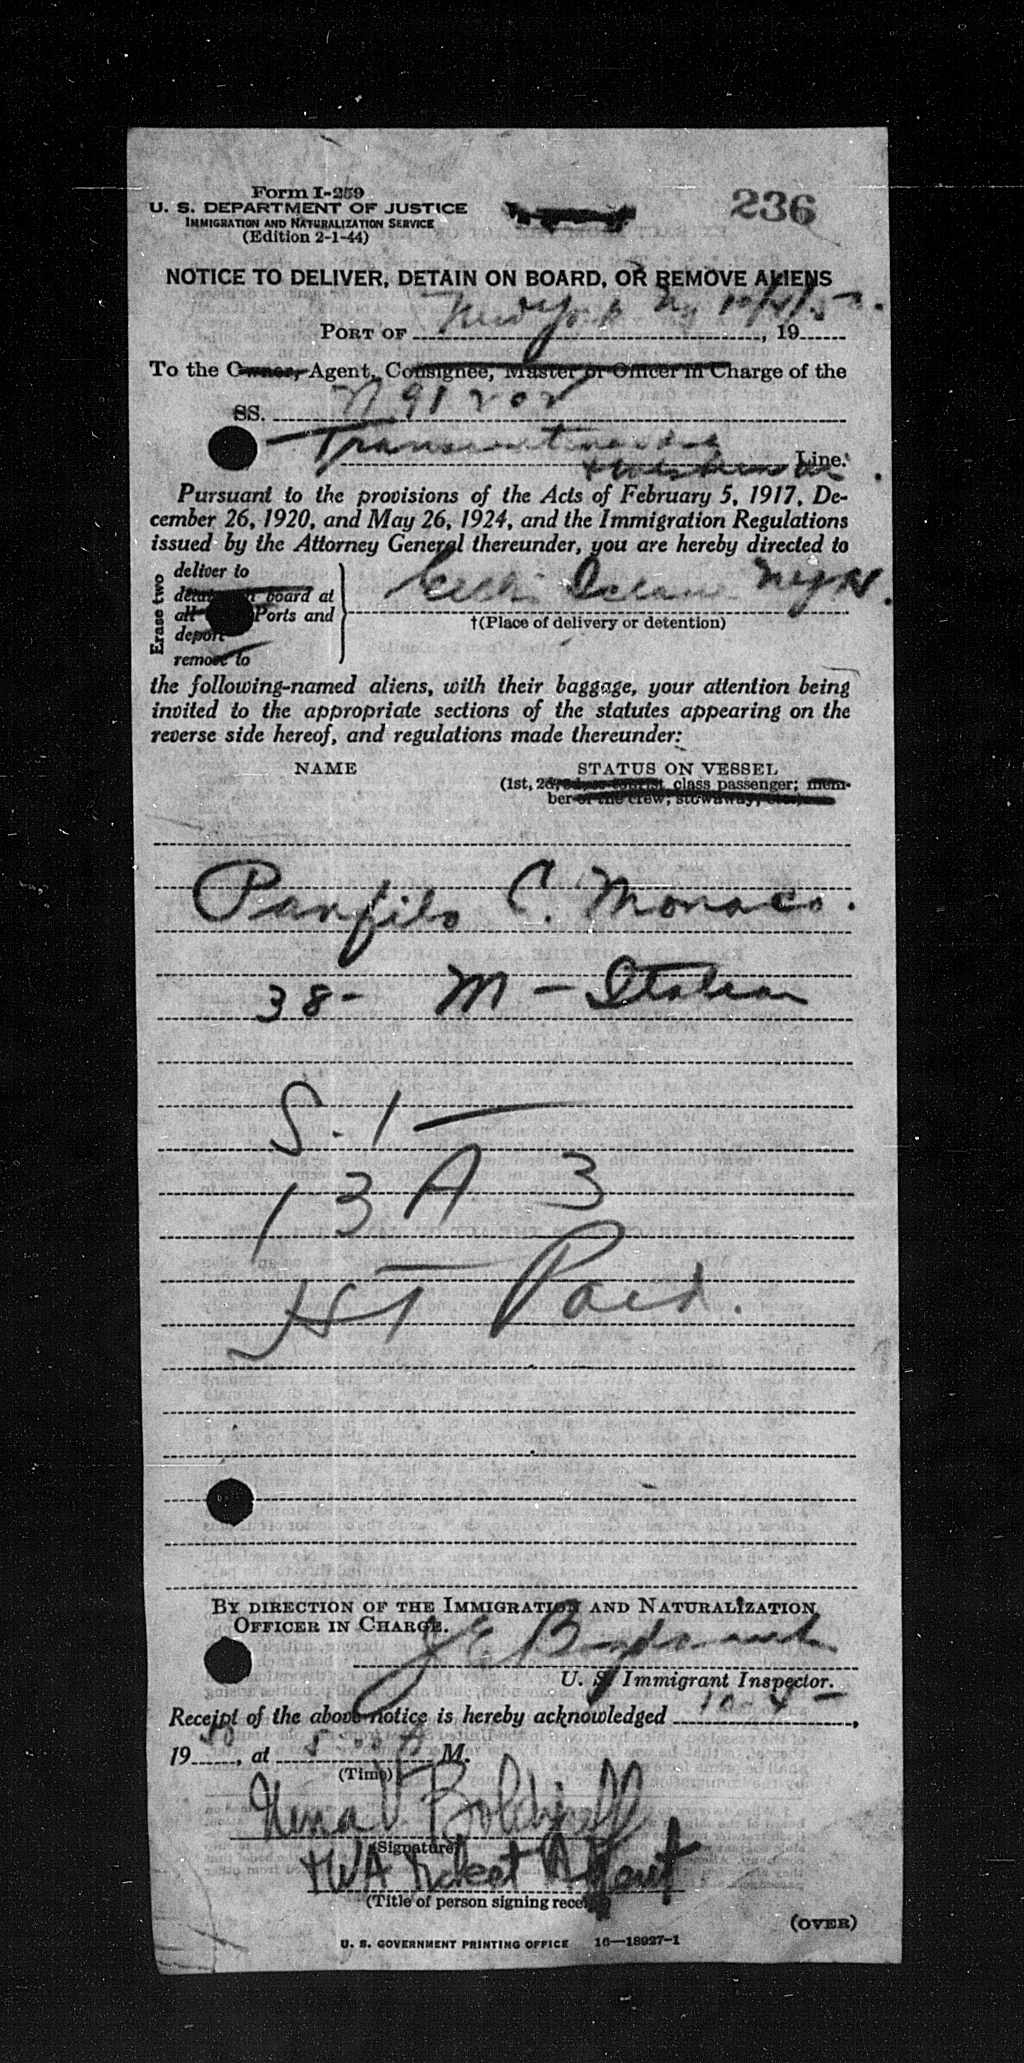 Form I-259
236
U. S. DEPARTMENT OF JUSTICE
IMMIGRATION AND NATURALIZATION SERVICE
(Edition 2-1-44)
NOTICE TO DELIVER, DETAIN ON BOARD, OR REMOVE ALIENS
PORT OF New York NY 10/4/50, 19
To the Owner, Agent, Consignee, Master or Officer in Charge of the
SS. N 91202
Line.
Pursuant to the provisions of the Acts of February 5, 1917, De-
cember 26, 1920, and May 26, 1924, and the Immigration Regulations
issued by the Attorney General thereunder, you are hereby directed to
Erase two
deliver to
detain on board at
all Ports and
deport
remove to
Ellis Island NYH.
†(Place of delivery or detention)
the following-named aliens, with their baggage, your attention being
invited to the appropriate sections of the statutes appearing on the
reverse side hereof, and regulations made thereunder:
NAME STATUS ON VESSEL
(1st, 2d, 3d, or tourist class passenger; mem-
ber of the crew, stowaway, etc.)
Panfilo C. Monaco.
38- M - Italian
S. 1 -
13 A 3
HT Paid.
BY DIRECTION OF THE IMMIGRATION AND NATURALIZATION
OFFICER IN CHARGE.
J E
U. S. Immigrant Inspector.
Receipt of the above notice is hereby acknowledged 10-4-,
1950, at 5:00 A M.
(Time)
Nena V.
(Signature)
TWA Ticket Agent
(Title of person signing receipt)
(OVER)
U. S. GOVERNMENT PRINTING OFFICE 16—18927-1